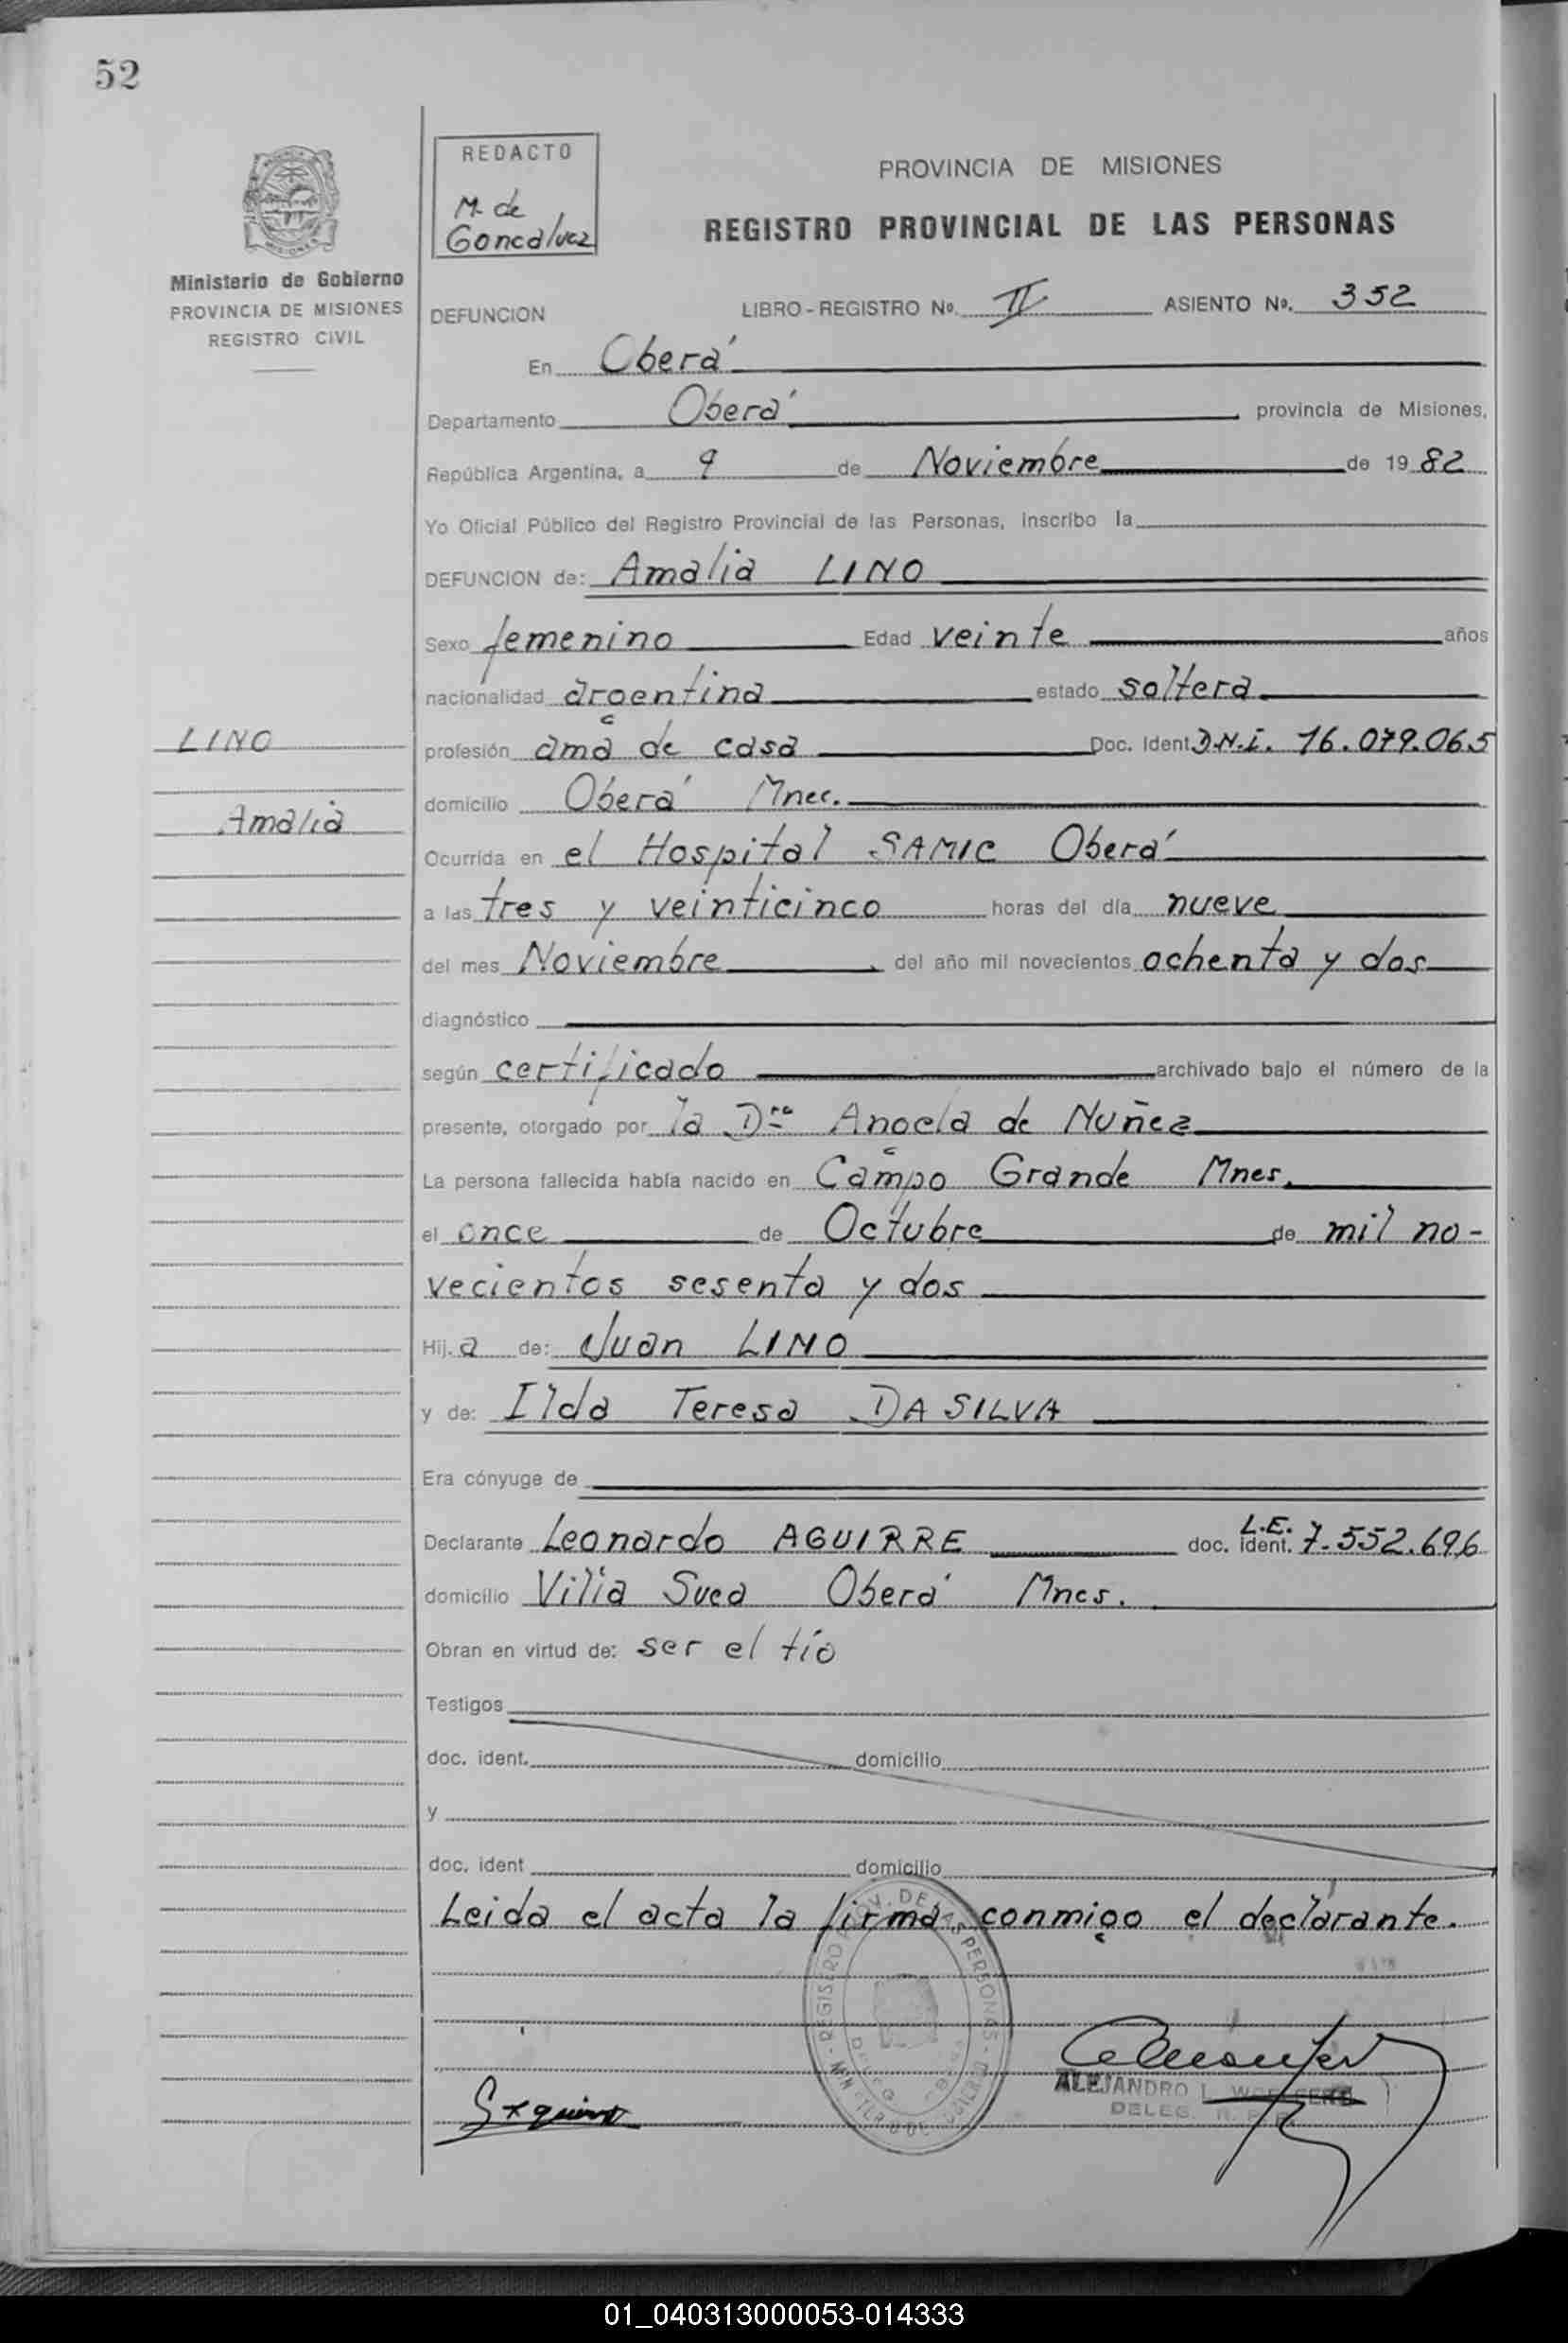 52
REDACTO
M. de
Goncalvez
PROVINCIA DE MISIONES
REGISTRO PROVINCIAL DE LAS PERSONAS
Ministerio de Gobierno
PROVINCIA DE MISIONES
REGISTRO CIVIL
DEFUNCION LIBRO - REGISTRO Nº. II ASIENTO Nº. 352
En Oberá
Departamento Oberá provincia de Misiones,
República Argentina, a 9 de Noviembre de 19 82
Yo Oficial Público del Registro Provincial de las Personas, inscribo la
DEFUNCION de: Amalia LINO
Sexo femenino Edad veinte años
nacionalidad argentina estado soltera
LINO
profesión ama de casa Doc. Ident D.N.I. 16.079.065
domicilio Oberá Mnes.
Amalia
Ocurrida en el Hospital SAMIC Oberá
a las tres y veinticinco horas del día nueve
del mes Noviembre del año mil novecientos ochenta y dos
diagnóstico
según certificado archivado bajo el número de la
presente, otorgado por la Dra Angela de Nuñez
La persona fallecida había nacido en Campo Grande Mnes.
el once de Octubre de mil no-
vecientos sesenta y dos
Hij. a de: Juan LINO
y de: Ilda Teresa DA SILVA
Era cónyuge de
Declarante Leonardo AGUIRRE doc. ident. L.E. 7.552.696
domicilio Villa Sued Oberá Mnes.
Obran en virtud de: ser el tío
Testigos
doc. ident. domicilio
y
doc. ident domicilio
Leida el acta la firma conmigo el declarante.
REGISTRO PROV. DE LAS PERSONAS
ALEJANDRO L.
DELEG. R. P. P.
01_040313000053-014333